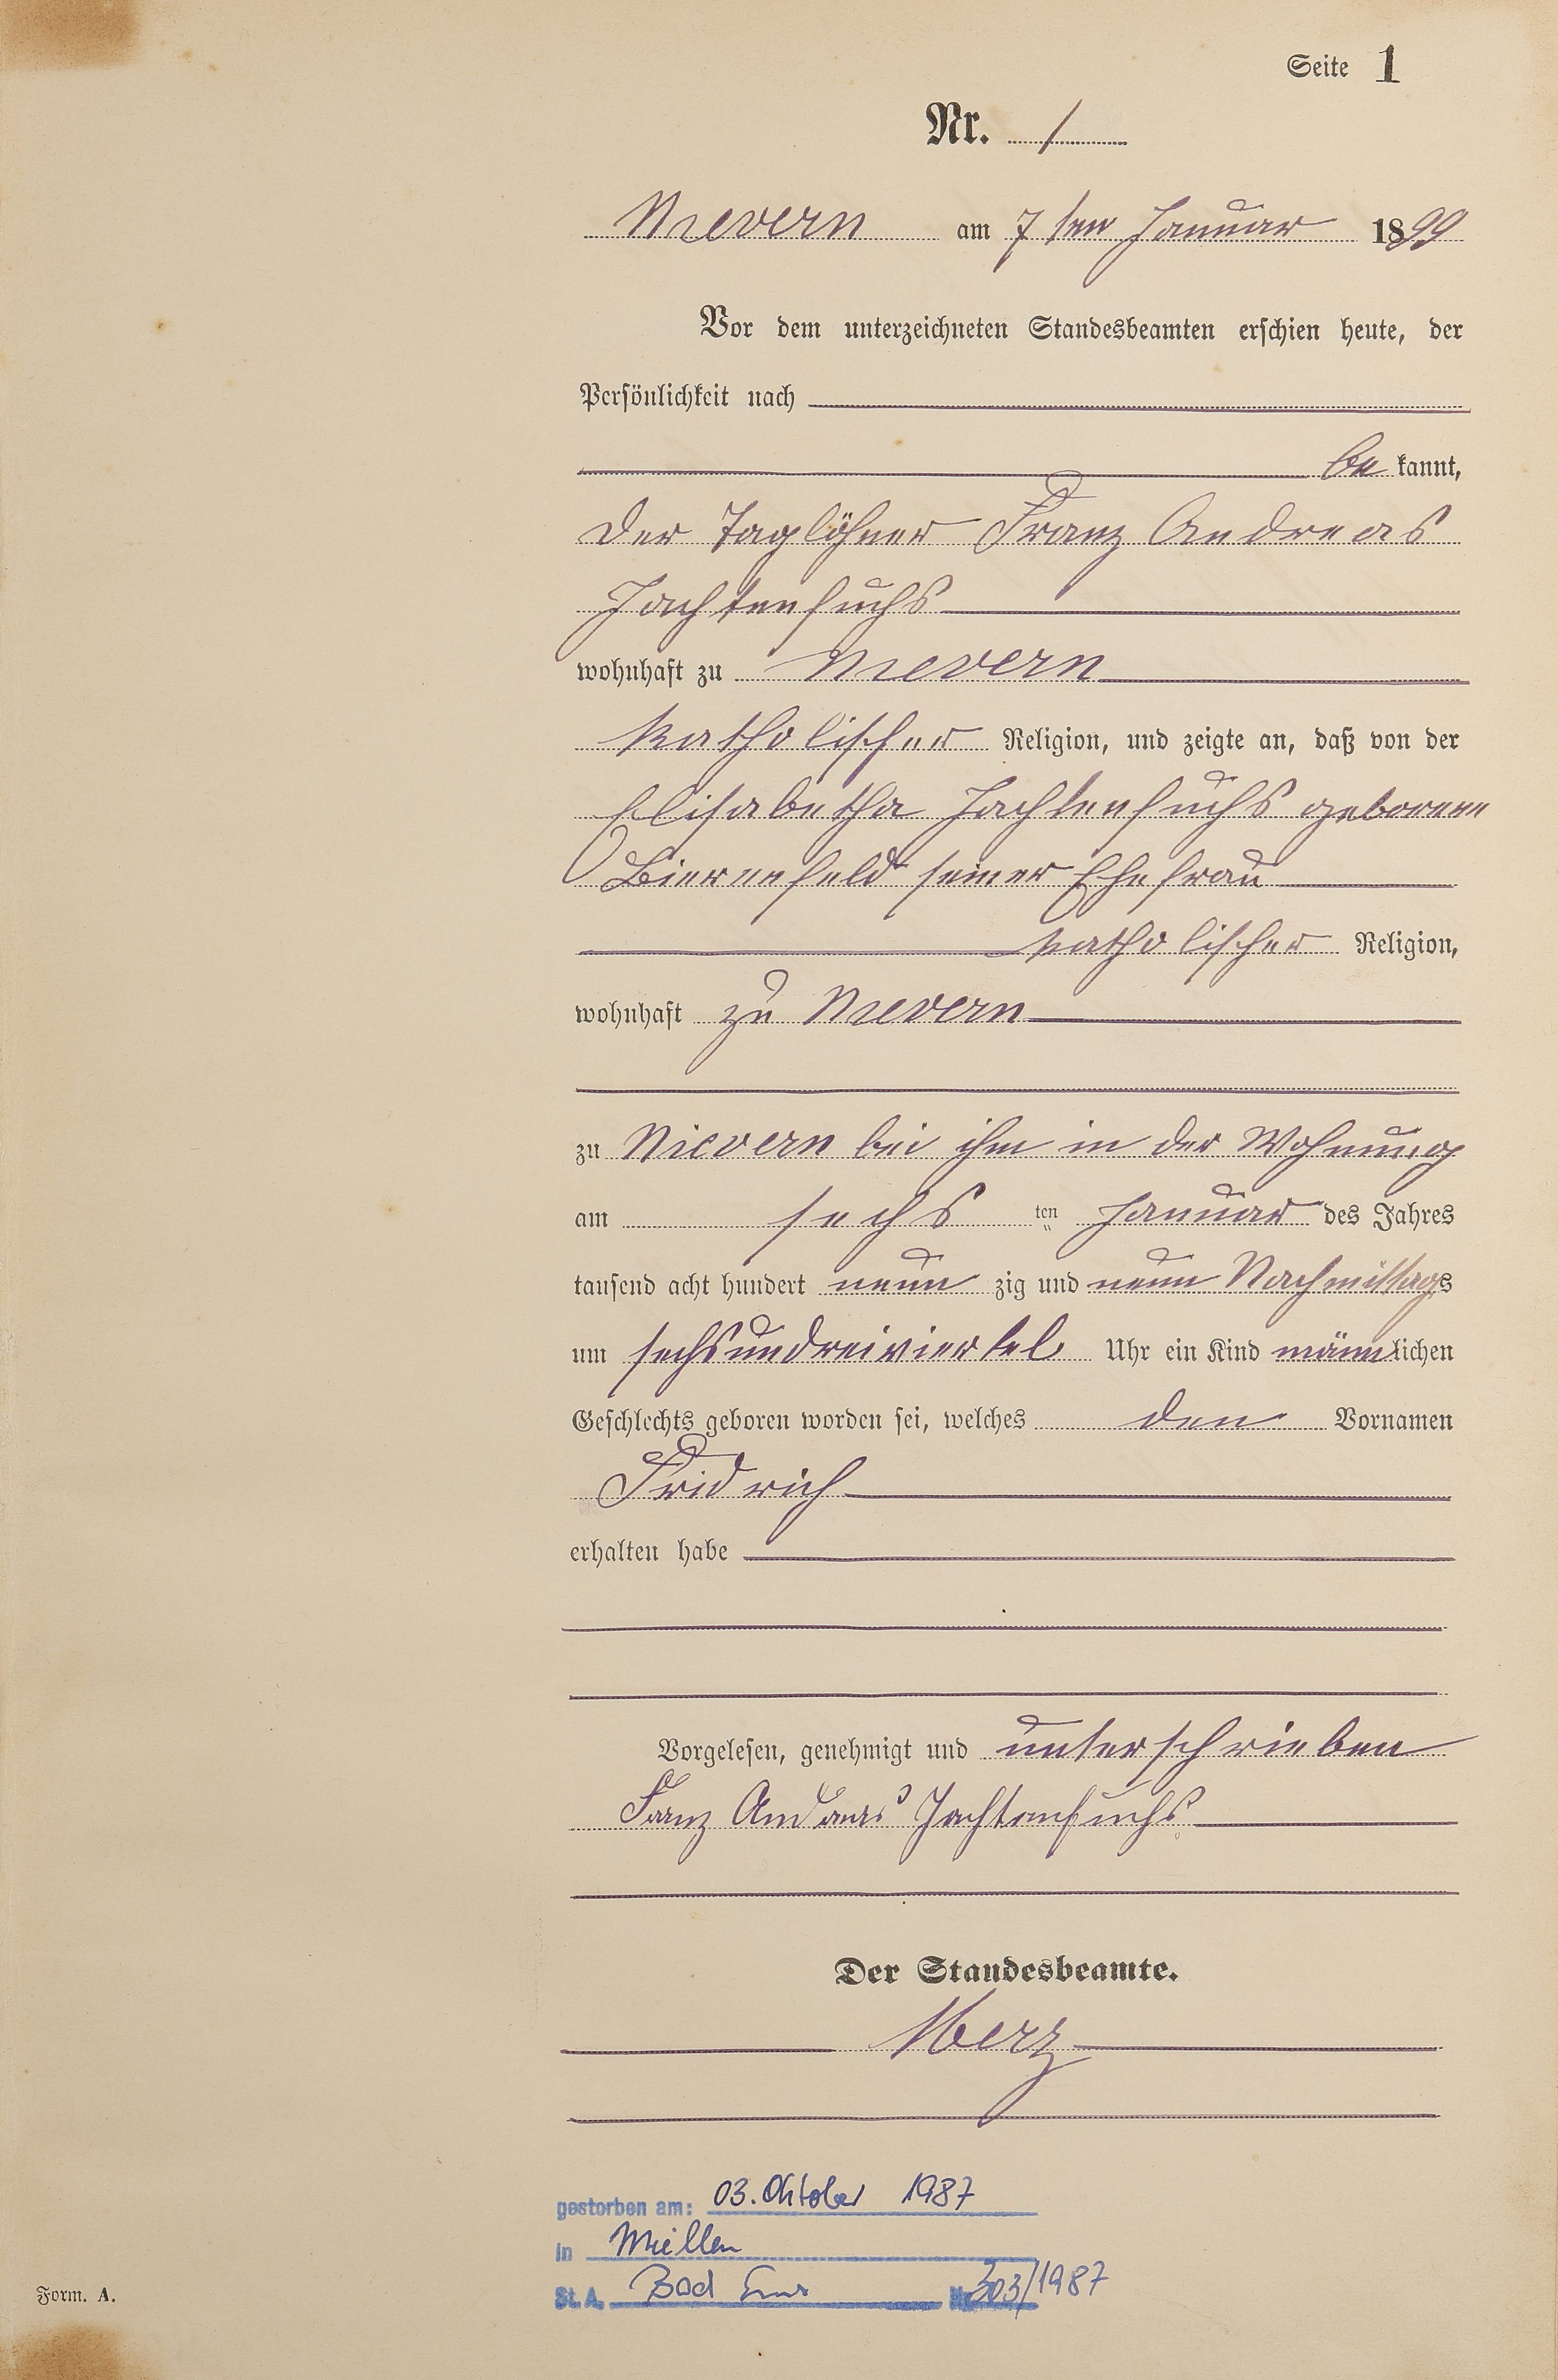 Seite 1
Nr. 1
Nievern am 7ten Januar 1899
Vor dem unterzeichneten Standesbeamten erschien heute, der
Persönlichkeit nach
be kannt,
der Taglöhner Franz Andreas
Jachtenfuchs
wohnhaft zu Nievern
katholischer Religion, und zeigte an, daß von der
Elisabetha Jachtenfuchs geborenen
Bierenfeld seiner Ehefrau
katholischer Religion,
wohnhaft zu Nievern
zu Nievern bei ihm in der Wohnung
am sechs ten Januar des Jahres
tausend acht hundert neun zig und neun Nachmittags
um sechsundreiviertel Uhr ein Kind männlichen
Geschlechts geboren worden sei, welches den Vornamen
Fridrich
erhalten habe
Vorgelesen, genehmigt und unterschrieben
Franz Andreas Jachtenfuchs
Der Standesbeamte.
Merz
gestorben am: 03. Oktober 1987
in Miellen
St. A. Bad Ems Nr. 303/1987
Form. A.